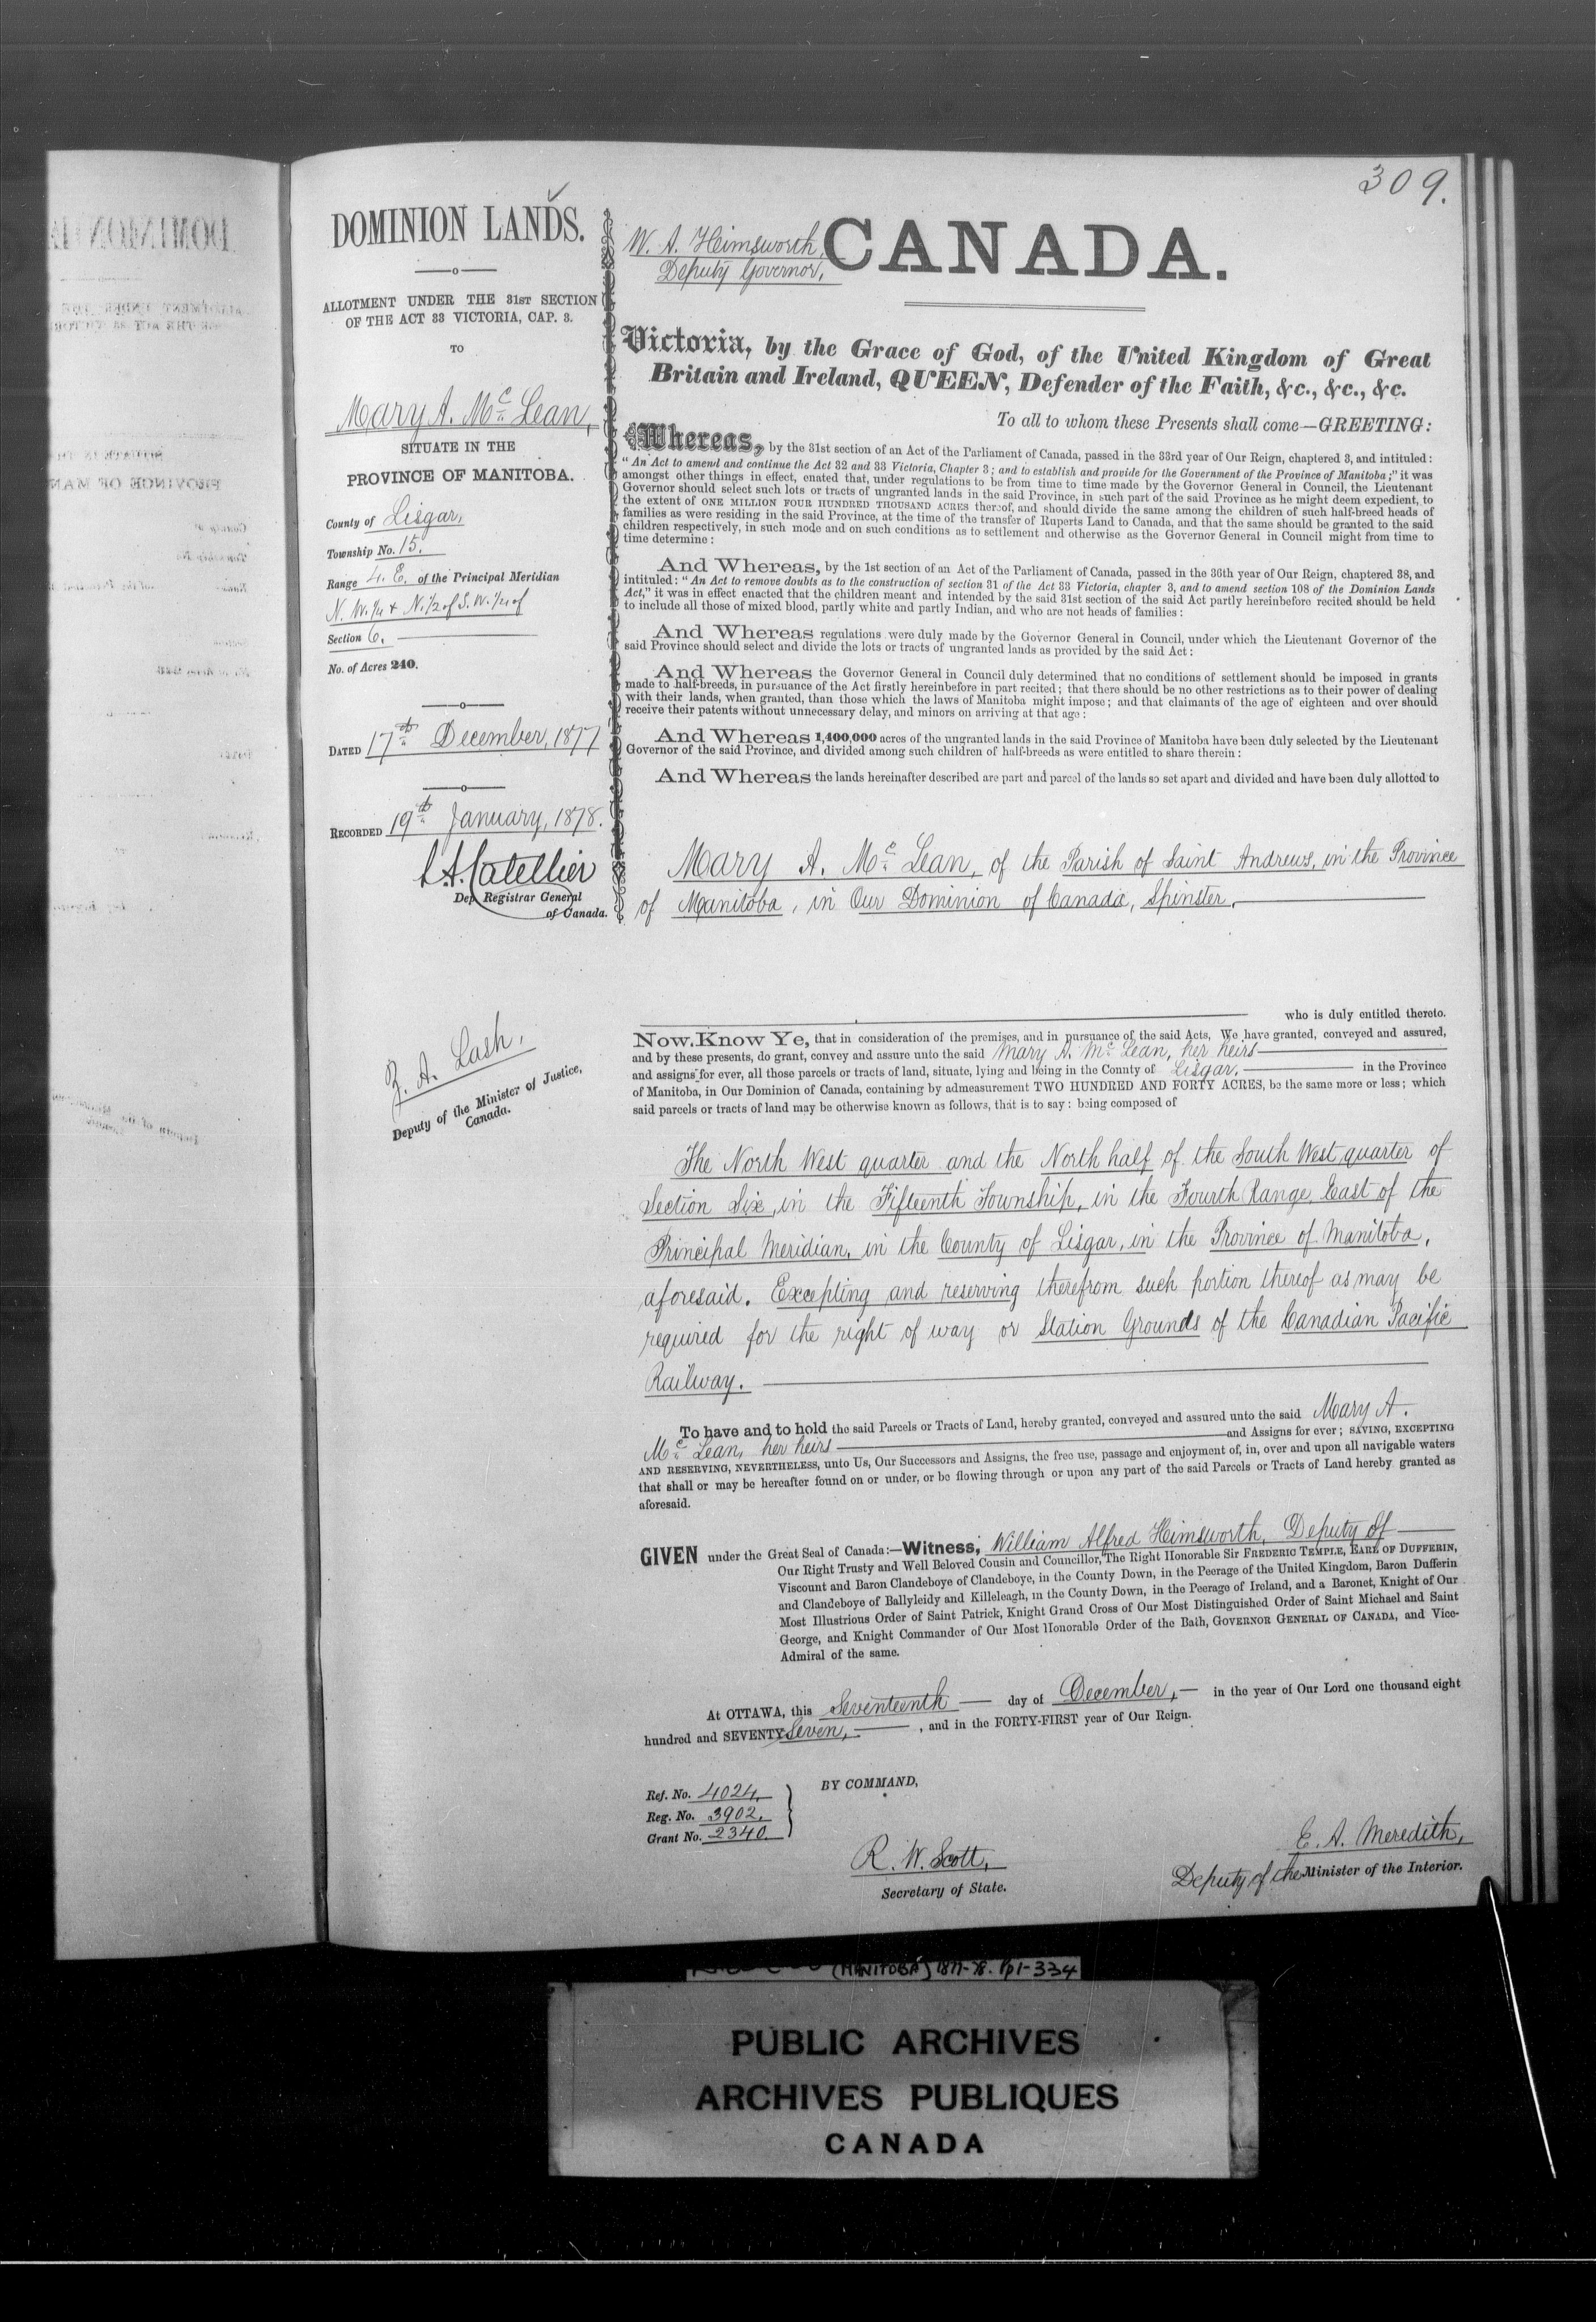 309.
DOMINION LANDS.
ALLOTMENT UNDER THE 31ST SECTION
OF THE ACT 33 VICTORIA, CAP. 3.
TO
Mary A. Mc Lean,
SITUATE IN THE
PROVINCE OF MANITOBA.
County of Lisgar,
Township No. 15.
Range 4. E. of the Principal Meridian
N. W. 1/4 & N. 1/2 of S. W. 1/4 of
Section 6.
No. of Acres 240.
DATED 17th December, 1877
RECORDED 19th January, 1878.
L. A. Catellier
Dep Registrar General
of Canada.
Z. A. Lash,
Deputy of the Minister of Justice,
Canada.
W. A. Heimsworth,
Deputy Governor,
CANADA.
Victoria, by the Grace of God, of the United Kingdom of Great
Britain and Ireland, QUEEN, Defender of the Faith, &c., &c., &c.
To all to whom these Presents shall come—GREETING:
Whereas, by the 31st section of an Act of the Parliament of Canada, passed in the 33rd year of Our Reign, chaptered 3, and intituled:
"An Act to amend and continue the Act 32 and 33 Victoria, Chapter 3; and to establish and provide for the Government of the Province of Manitoba;" it was
amongst other things in effect, enated that, under regulations to be from time to time made by the Governor General in Council, the Lieutenant
Governor should select such lots or tracts of ungranted lands in the said Province, in such part of the said Province as he might deem expedient, to
the extent of ONE MILLION FOUR HUNDRED THOUSAND ACRES thereof, and should divide the same among the children of such half-breed heads of
families as were residing in the said Province, at the time of the transfer of Ruperts Land to Canada, and that the same should be granted to the said
children respectively, in such mode and on such conditions as to settlement and otherwise as the Governor General in Council might from time to
time determine:
And Whereas, by the 1st section of an Act of the Parliament of Canada, passed in the 36th year of Our Reign, chaptered 38, and
intituled: "An Act to remove doubts as to the construction of section 31 of the Act 33 Victoria, chapter 3, and to amend section 108 of the Dominion Lands
Act," it was in effect enacted that the children meant and intended by the said 31st section of the said Act partly hereinbefore recited should be held
to include all those of mixed blood, partly white and partly Indian, and who are not heads of families:
And Whereas regulations were duly made by the Governor General in Council, under which the Lieutenant Governor of the
said Province should select and divide the lots or tracts of ungranted lands as provided by the said Act:
And Whereas the Governor General in Council duly determined that no conditions of settlement should be imposed in grants
made to half-breeds, in pursuance of the Act firstly hereinbefore in part recited; that there should be no other restrictions as to their power of dealing
with their lands, when granted, than those which the laws of Manitoba might impose; and that claimants of the age of eighteen and over should
receive their patents without unnecessary delay, and minors on arriving at that age:
And Whereas 1,400,000 acres of the ungranted lands in the said Province of Manitoba have been duly selected by the Lieutenant
Governor of the said Province, and divided among such children of half-breeds as were entitled to share therein:
And Whereas the lands hereinafter described are part and parcel of the lands so set apart and divided and have been duly allotted to
Mary A. Mc Lean, of the Parish of Saint Andrews, in the Province
of Manitoba, in Our Dominion of Canada, Spinster,
who is duly entitled thereto.
Now Know Ye, that in consideration of the premises, and in pursuance of the said Acts, We have granted, conveyed and assured,
and by these presents, do grant, convey and assure unto the said Mary A. Mc Lean, her heirs
and assigns for ever, all those parcels or tracts of land, situate, lying and being in the County of Lisgar, in the Province
of Manitoba, in Our Dominion of Canada, containing by admeasurement TWO HUNDRED AND FORTY ACRES, be the same more or less; which
said parcels or tracts of land may be otherwise known as follows, that is to say: being composed of
The North West quarter and the North half of the South West quarter of
Section Six, in the Fifteenth Township, in the Fourth Range, East of the
Principal Meridian, in the County of Lisgar, in the Province of Manitoba,
aforesaid. Excepting and reserving therefrom such portion thereof as may be
required for the right of way or Station Grounds of the Canadian Pacific
Railway.
To have and to hold the said Parcels or Tracts of Land, hereby granted, conveyed and assured unto the said Mary A.
Mc Lean, her heirs and Assigns for ever; SAVING, EXCEPTING
AND RESERVING, NEVERTHELESS, unto Us, Our Successors and Assigns, the free use, passage and enjoyment of, in, over and upon all navigable waters
that shall or may be hereafter found on or under, or be flowing through or upon any part of the said Parcels or Tracts of Land hereby granted as
aforesaid.
GIVEN under the Great Seal of Canada:—Witness, William Alfred Heimsworth, Deputy of
Our Right Trusty and Well Beloved Cousin and Councillor, The Right Honorable Sir FREDERIC TEMPLE, EARL OF DUFFERIN,
Viscount and Baron Clandeboye of Clandeboye, in the County Down, in the Peerage of the United Kingdom, Baron Dufferin
and Clandeboye of Ballyleidy and Killeleagh, in the County Down, in the Peerage of Ireland, and a Baronet, Knight of Our
Most Illustrious Order of Saint Patrick, Knight Grand Cross of Our Most Distinguished Order of Saint Michael and Saint
George, and Knight Commander of Our Most Honorable Order of the Bath, GOVERNOR GENERAL OF CANADA, and Vice-
Admiral of the same.
At OTTAWA, this Seventeenth day of December, in the year of Our Lord one thousand eight
hundred and SEVENTY Seven, , and in the FORTY-FIRST year of Our Reign.
Ref. No. 4024.
Reg. No. 3902.
Grant No. 2340.
BY COMMAND,
R. W. Scott,
Secretary of State.
E. A. Meredith,
Deputy of the Minister of the Interior.
(MANITOBA) 1877-78. pp1-334
PUBLIC ARCHIVES
ARCHIVES PUBLIQUES
CANADA